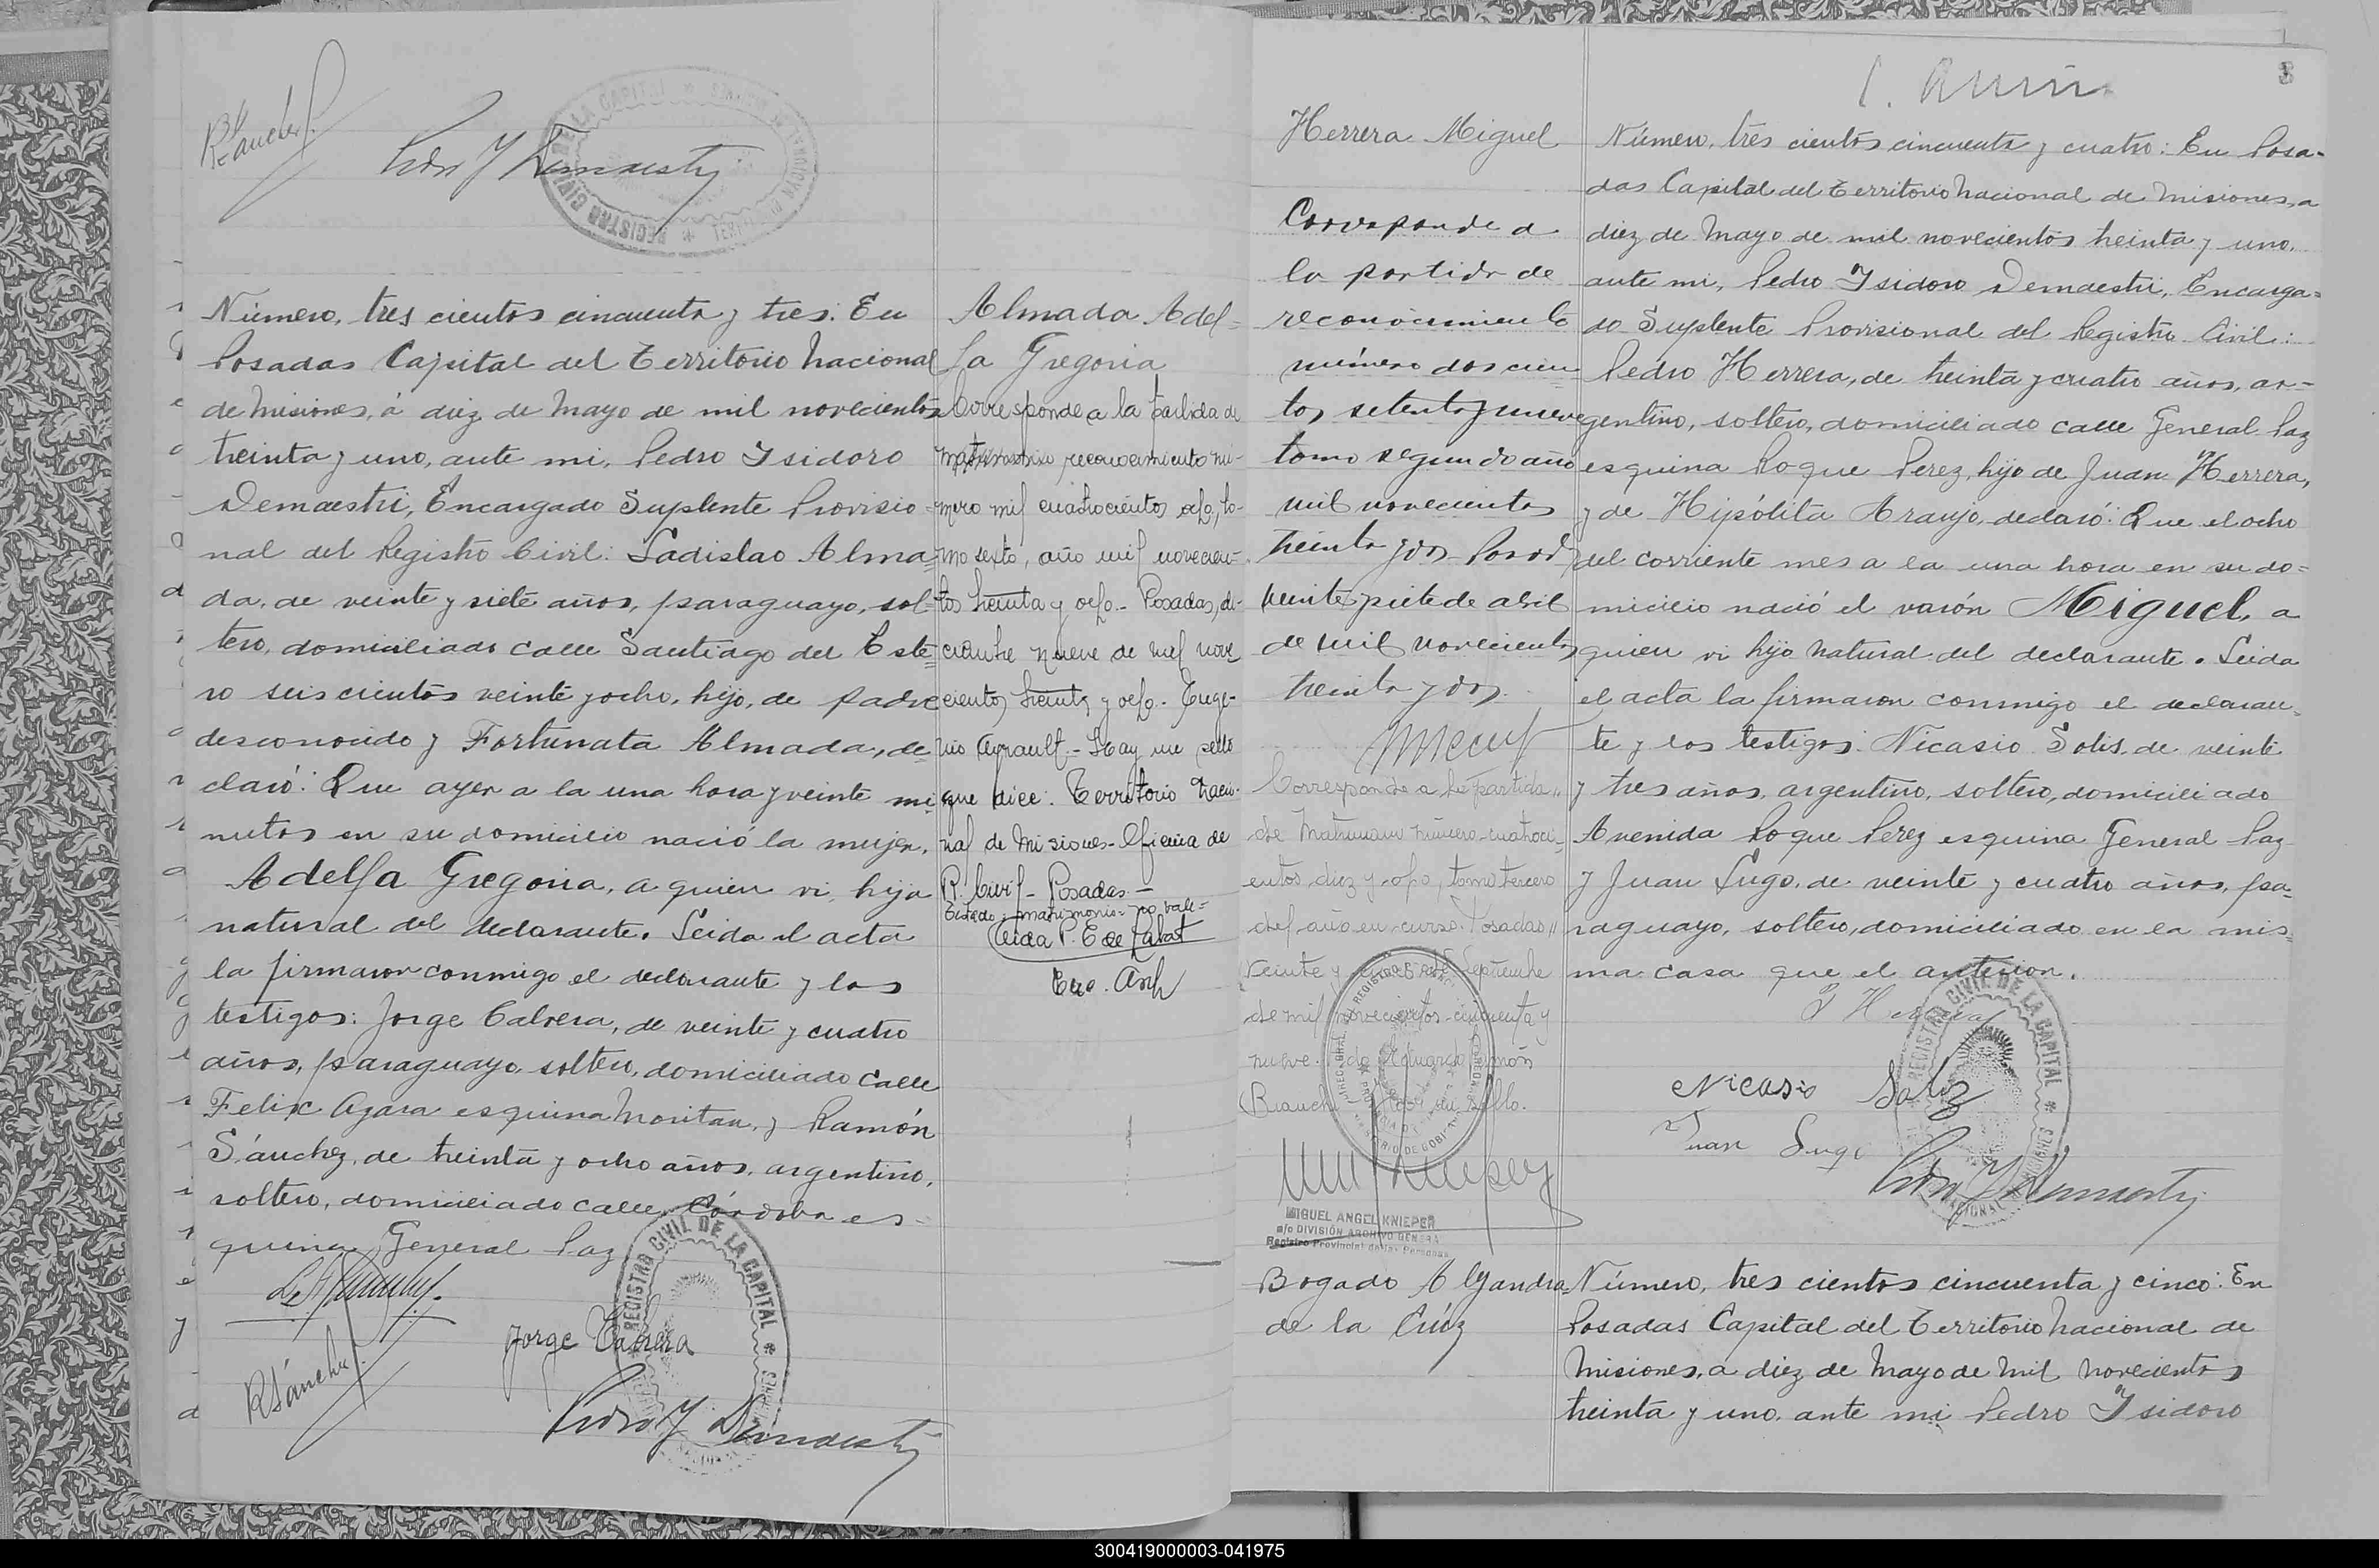 RSánchez
Pedro Y Demaestri
REGISTRO CIVIL DE LA CAPITAL
Número, tres cientos cincuenta y tres: En
Posadas Capital del Territorio Nacional
de Misiones, á diez de Mayo de mil novecientos
treinta y uno, ante mi, Pedro Isidoro
Demaestri, Encargado Suplente Provisio=
nal del Registro Civil: Ladislao Alma=
da, de veinte y siete años, paraguayo, sol=
tero, domiciliado calle Santiago del Este=
ro seis cientos veinte y ocho, hijo, de padre
desconocido y Fortunata Almada, de=
claró: Que ayer a la una hora y veinte mi
nutos en su domicilio nació la mujer,
Adelfa Gregoria, a quien vi, hija
natural del declarante. Leida el acta
la firmaron conmigo el declarante y los
testigos: Jorge Cabrera, de veinte y cuatro
años, paraguayo, soltero, domiciliado calle
Felix Azara esquina Moritan, y Ramón
Sánchez, de treinta y ocho años, argentino,
soltero, domiciliado calle Córdoba es=
quina General Paz
RSánchez
Jorge Cabrera
Pedro Y Demaestri
REGISTRO CIVIL DE LA CAPITAL
Almada Adel=
fa Gregoria
Corresponde a la partida de
matrimonio reconocimiento nú-
mero mil cuatrocientos ocho, to-
mo sexto, año mil novecien-
tos treinta y ocho.- Posadas, di-
ciembre nueve de mil nove
cientos treinta y ocho.- Euge-
nio Ayrault.- Hay un sello
que dice: Territorio Nacio-
nal de Misiones- Oficina de
R. Civil- Posadas.-
Testado: matrimonio= no vale=
Enc. Arch
3
Herrera Miguel
Corresponde a
la partida de
reconocimiento
número dos cien
tos setenta y nueve
tomo segundo año
mil novecientos
treinta y dos Posad
veinte y siete de abril
de mil novecientos
treinta y dos.
Corresponde a la partida
de Matrimonio número cuatroci=
entos diez y ocho, tomo tercero
del año en curso. Posadas
veinte y Septiembre
de mil novecientos cincuenta y
nueve. Fdo Eduardo Ramón
Bianchi Hay un sello.
MIGUEL ANGEL KNIEPER
a/c DIVISIÓN ARCHIVO GENERAL
Registro Provincial de las Personas
Número, tres cientos cincuenta y cuatro: En Posa-
das Capital del Territorio Nacional de Misiones, a
diez de Mayo de mil novecientos treinta y uno,
ante mi, Pedro Isidoro Demaestri, Encarga=
do Suplente Provisional del Registro Civil:
Pedro Herrera, de treinta y cuatro años, ar-
gentino, soltero, domiciliado calle General Paz
esquina Roque Perez, hijo de Juan Herrera,
y de Hipólita Araujo, declaró: Que el ocho
del corriente mes a la una hora en su do=
micilio nació el varón Miguel, a
quien vi hijo natural del declarante. Leida
el acta la firmaron conmigo el declaran=
te y los testigos: Nicasio Solis, de veinte
y tres años, argentino, soltero, domiciliado
Avenida Roque Perez esquina General Paz
y Juan Lugo, de veinte y cuatro años, pa=
raguayo, soltero, domiciliado en la mis=
ma casa que el anterior.
P Herrera
Nicasio Soliz
Juan Lugo
Pedro Y Demaestri
REGISTRO CIVIL DE LA CAPITAL
Bogado Alejandra
de la Crúz
Número, tres cientos cincuenta y cinco: En
Posadas Capital del Territorio Nacional de
Misiones, a diez de Mayo de mil novecientos
treinta y uno, ante mi Pedro Isidoro
300419000003-041975